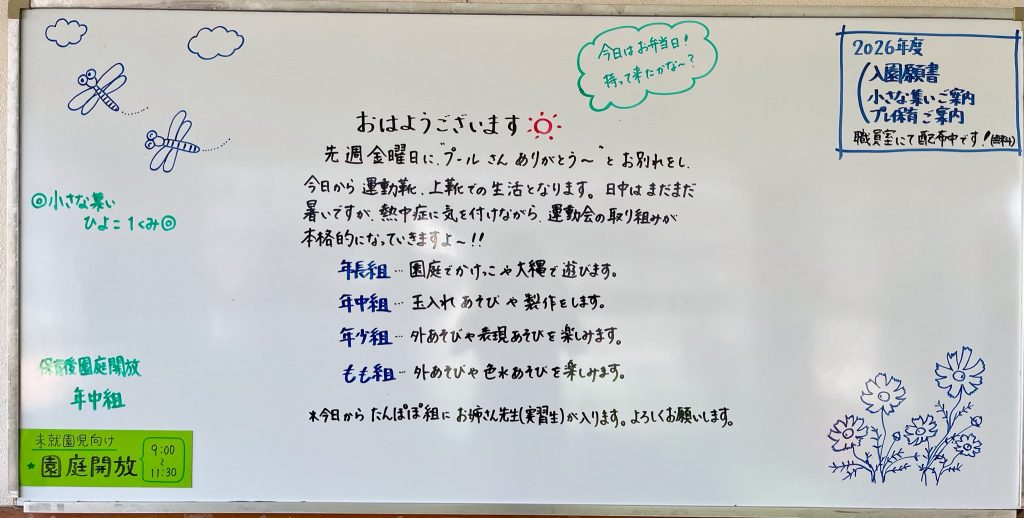 今日はお弁当日!
持って来たかな〜?
2026年度
入園願書
小さな集いご案内
プレ保育ご案内
職員室にて配布中です!
おはようございます
先週金曜日に、"プールさんありがとう〜"とお別れをし、
今日から運動靴、上靴での生活となります。日中はまだまだ
暑いですが、熱中症に気を付けながら、運動会の取り組みが
本格的になっていきますよ〜!!
年長組…園庭でかけっこや大縄で遊びます。
年中組…玉入れあそびや製作をします。
年少組…外あそびや表現あそびを楽しみます。
もも組…外あそびや色水あそびを楽しみます。
*今日からたんぽぽ組にお姉さん先生(実習生)が入ります。よろしくお願いします。
◎小さな集い
ひよこ1くみ◎
保育後園庭開放
年中組
未就園児向け
★園庭開放
9:00
〜
11:30